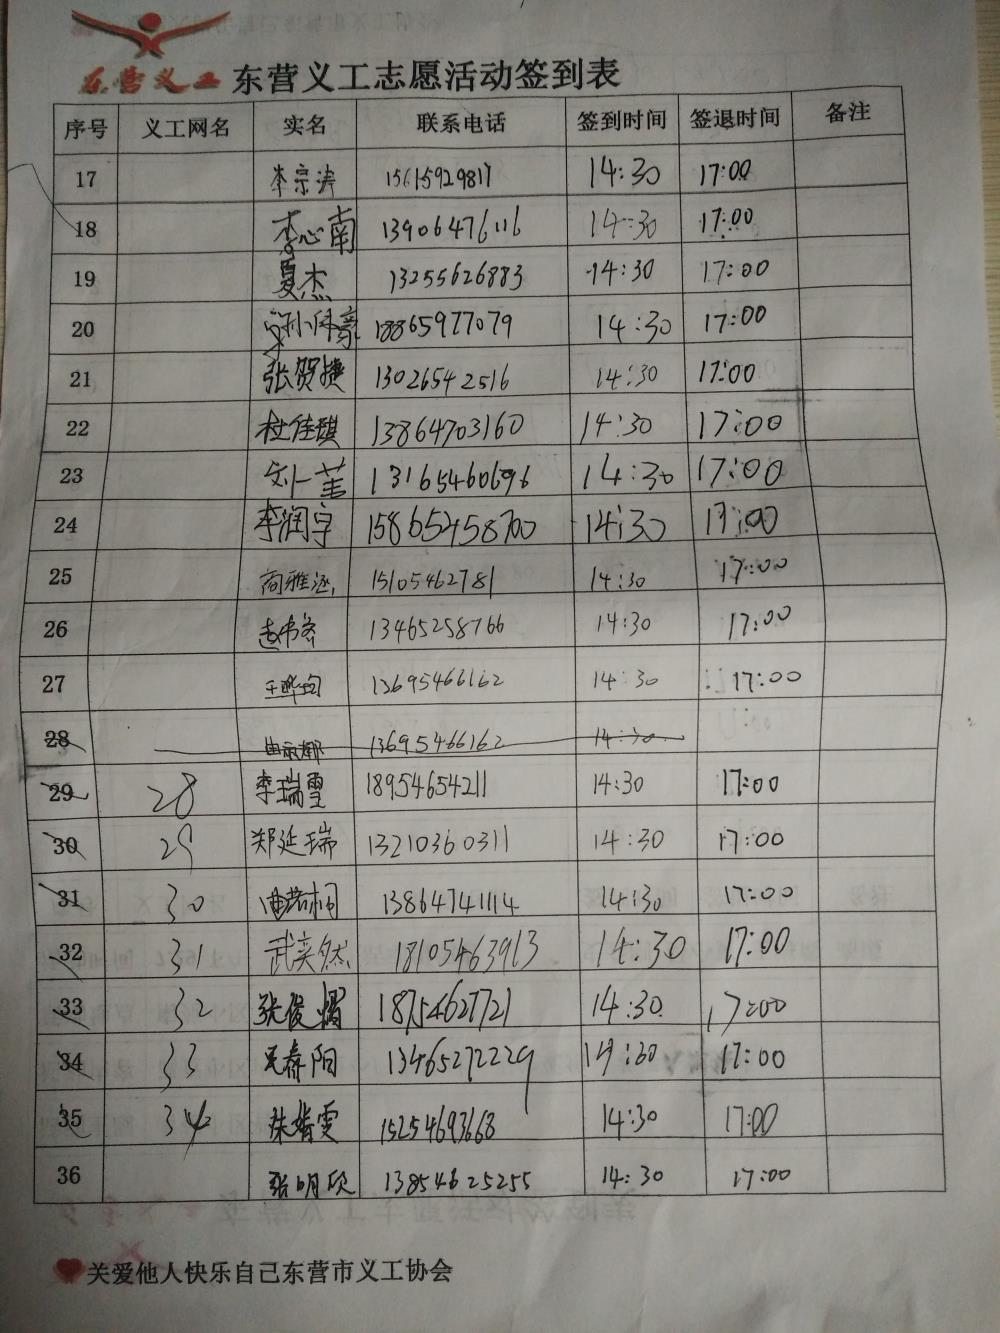 东营义工 东营义工志愿活动签到表
序号 义工网名 实名 联系电话 签到时间 签退时间 备注
17 李宗涛 15615929817 14:30 17:00
18 李心南 13906476116 14:30 17:00
19 夏杰 13255626883 14:30 17:00
20 18865977079 14:30 17:00
21 张贺捷 13026542516 14:30 17:00
22 杜佳琪 13864703160 14:30 17:00
23 刘一菲 13165460696 14:30 17:00
24 李润宇 15865458700 14:30 17:00
25 尚雅涵 15105462781 14:30 17:00
26 13465258766 14:30 17:00
27 王晔钧 13695466162 14:30 17:00
28 13695466162 14:30
29 28 李瑞雪 18954654211 14:30 17:00
30 29 郑延瑞 13210360311 14:30 17:00
31 30 曲若桐 13864741114 14:30 17:00
32 31 武奕然 18105463913 14:30 17:00
33 32 张俊熠 18754627721 14:30 17:00
34 33 王春阳 13465272229 14:30 17:00
35 34 朱婧雯 15254693668 14:30 17:00
36 张明欣 13854625255 14:30 17:00
关爱他人快乐自己东营市义工协会